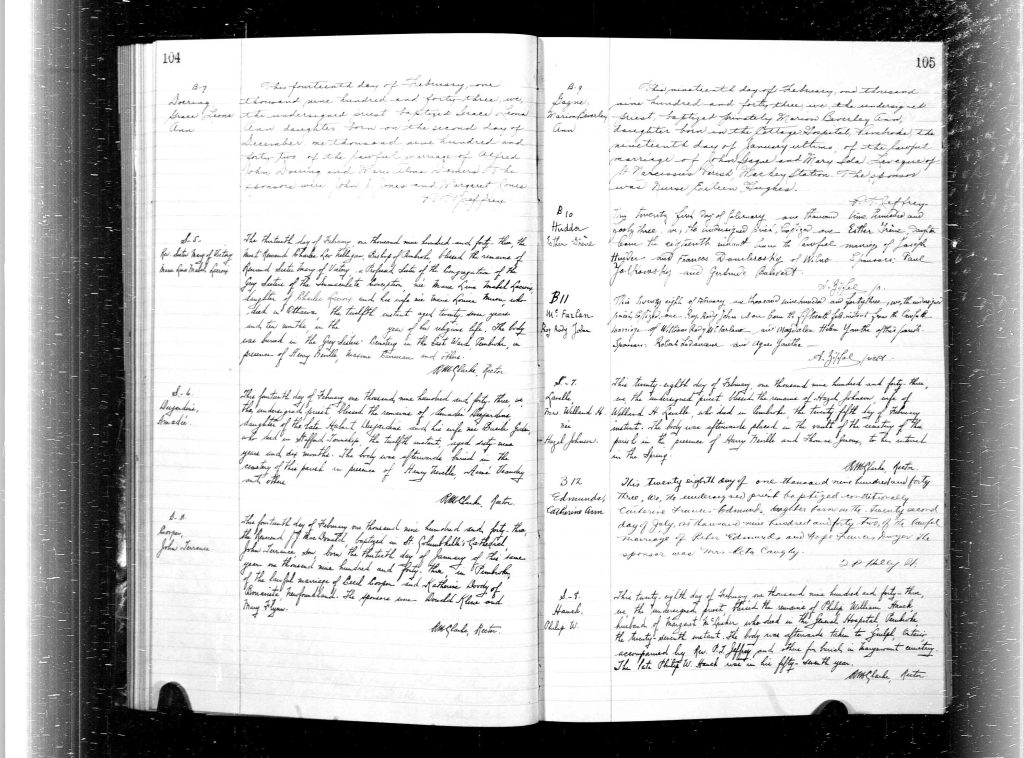 104
B-7
Doering
Grace Leona
Ann
This fourteenth day of February, one
thousand nine hundred and forty-three, we,
the undersigned priest baptized Grace Leona
Ann daughter born on the second day of
December one thousand nine hundred and
forty two of the lawful marriage of Alfred
John Doering and
sponsors were John J. Jones and Margaret Jones
Jeffrey
S-5-
Rev. Sister Mary of Victory
The thirteenth day of February, one thousand nine hundred and forty-three, the
Most Reverend Charles Leo Nelligan Bishop of Pembroke, blessed the remains of
Reverend Sister Mary of Victory, a Professed Sister of the Congregation of the
Grey Sisters of the Immaculate Conception, née Marie Lina Mabel
daughter of Charles and his wife née Louise who
died in Ottawa, the twelfth instant, aged twenty seven years
and ten months in the year of her religious life. The body
was buried in the Grey Sisters' Cemetery in the East Ward, Pembroke, in
presence of Henry Neville, Maxime and others.
Rector.
S-6-
Desjardins,
Amadée
This fourteenth day of February, one thousand nine hundred and forty-three, we
the undersigned priest blessed the remains of Amadée Desjardins,
daughter of the late Hubert Desjardins and his wife née
who died in Stafford Township, the twelfth instant, aged sixty nine
years and six months. The body was afterwards buried in the
cemetery of this parish in presence of Henry Neville,
and others
Rector.
B-8.
Cooper,
John Terrance
This fourteenth day of February one thousand nine hundred and forty-three,
the Reverend J. baptized in St. Columbkille's Cathedral,
John Terrance, son born the thirteenth day of January of this same
year one thousand nine hundred and forty three in Pembroke,
of the lawful marriage of Cecil Cooper and Katherine Doody of
Bonavista Newfoundland. The sponsors were Donald Kline and
Mary Flynn.
Rector.
105
B-9
Gagne,
Marion Beverley
Ann
This nineteenth day of February, one thousand
nine hundred and forty three we the undersigned
priest, baptized privately Marion Beverley Ann,
daughter born in the Cottage Hospital, Pembroke, the
nineteenth day of January ultimo, of the lawful
marriage of John Gagne and Mary Ida Levaque of
St Narcissus Parish Mackey Station. The sponsor
was Nurse Eileen Hughes.
Jeffrey
B10
Hudder
Esther Irene
This twenty first day of February one thousand nine hundred and
fourty three, we, the undersigned priest, baptized one Esther Irene daughter
born the eighteenth instant from the lawful marriage of Joseph
Hudder and Frances Dombrosky of Wilno Sponsors Paul
and Gertrude
B11
McFarlan
Roy Rody John
This twenty eight of February one thousand nine hundred and fourty three, we, the undersigned
priest baptized one Roy Rody John son born the fifteenth instant from the lawful
marriage of William Rody McFarlane and Magdalen Helen of this parish
Sponsors: Robert and Agnes
S-7-
Lavelle,
Mrs Willard H.
née
Hazel Johnson.
This twenty-eighth day of February, one thousand nine hundred and forty-three,
we, the undersigned priest blessed the remains of Hazel Johnson, wife of
Willard H. Lavelle, who died in Pembroke the twenty fifth day of February
instant. The body was afterwards placed in the vault of the cemetery of this
parish in the presence of Henry Neville and Thomas to be interred
in the Spring.
Rector.
B12
Edmunds,
Catherine Ann
This twenty eighth day of one thousand nine hundred and forty
three, we, the undersigned priest baptized conditionally
Catherine Frances Edmunds daughter born on the twenty second
day of July, one thousand nine hundred and forty two, of the lawful
marriage of Peter Edmunds and Dwyer. The
sponsor was Mrs. Rita
S-8.
Hauch,
Philip W.
This twenty eighth day of February, one thousand nine hundred and forty-three,
we, the undersigned priest blessed the remains of Philip William Hauch
husband of Margaret who died in the General Hospital, Pembroke
the twenty-seventh instant. The body was afterwards taken to Guelph, Ontario
accompanied by Rev. P.T. Jeffrey and others for burial in Marymount cemetery.
The late Philip W. Hauch was in his fifty-seventh year.
Rector